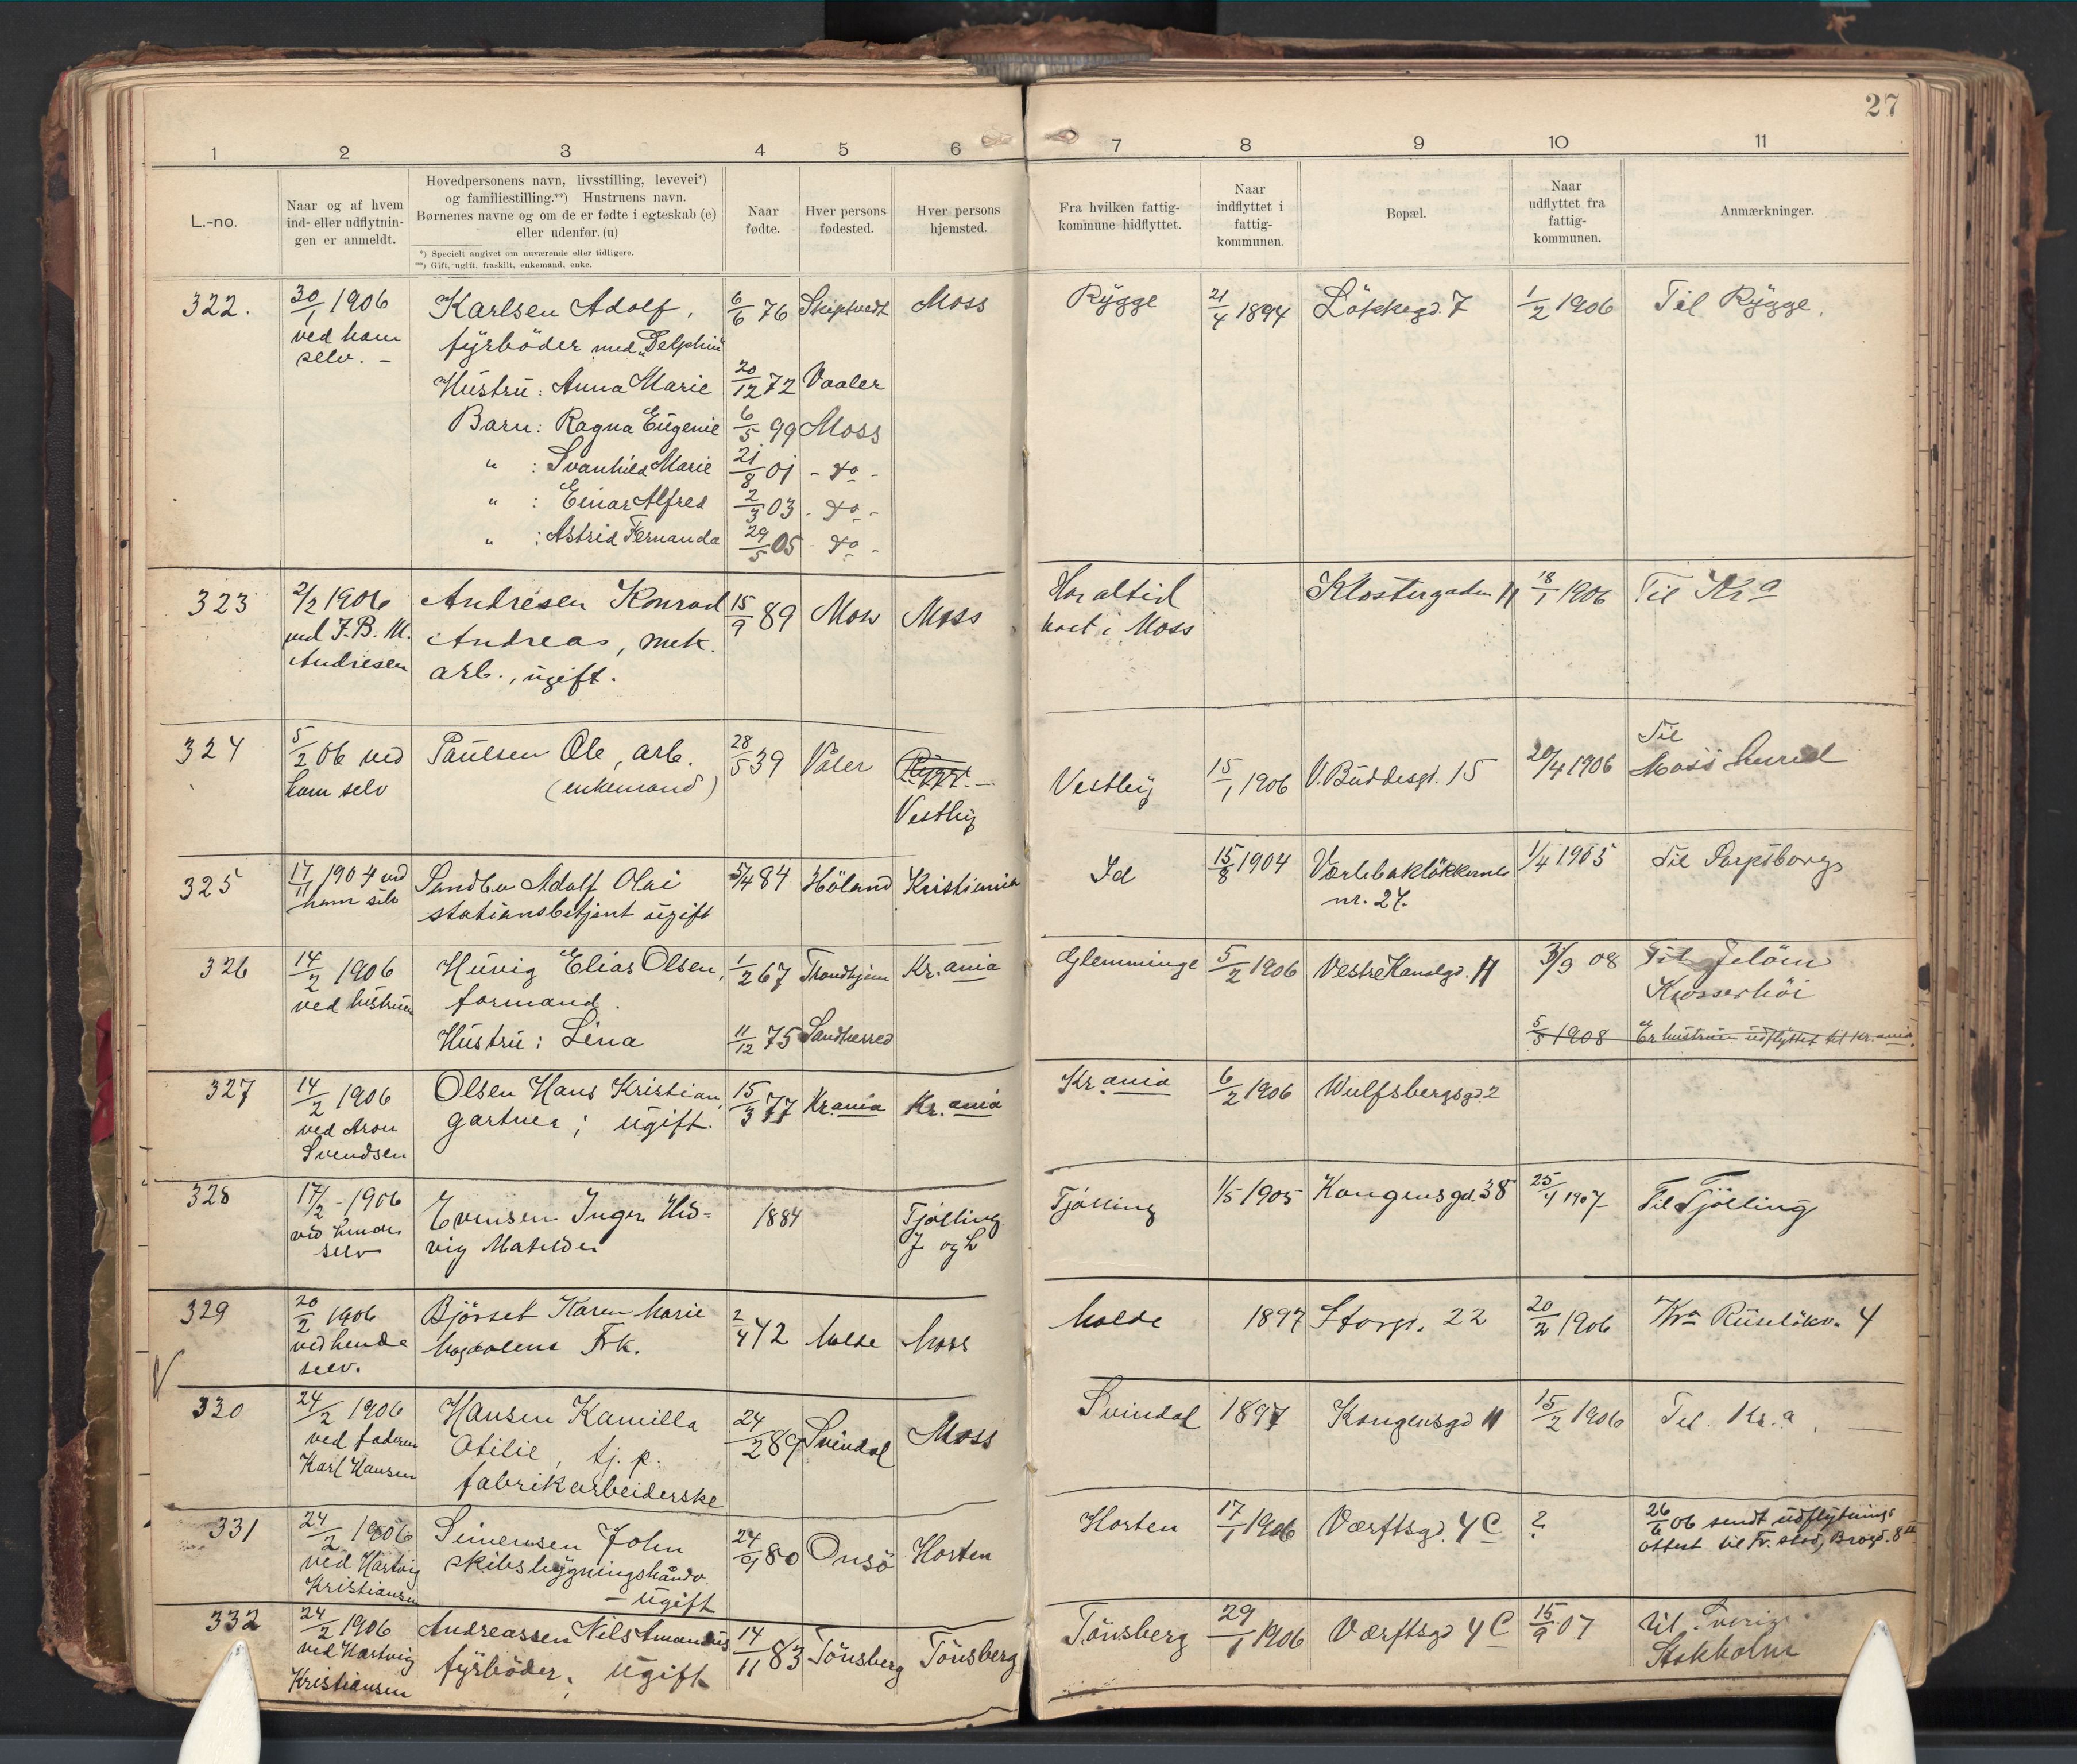 27
1 2 3 4 5 6 7 8 9 10 11
L.-no.
Naar og af hvem
ind- eller udflytnin-
gen er anmeldt.
Hovedpersonens navn, livsstilling, levevei*)
og familiestilling.**) Hustruens navn.
Børnenes navne og om de er fødte i egteskab (e)
eller udenfor. (u)
*) Specielt angivet om nuværende eller tidligere.
**) Gift, ugift, fraskilt, enkemand, enke.
Naar
fødte.
Hver persons
fødested.
Hver persons
hjemsted.
Fra hvilken fattig-
kommune hidflyttet.
Naar
indflyttet i
fattig-
kommunen.
Bopæl.
Naar
udflyttet fra
fattig-
kommunen.
Anmærkninger.
322. 30/1 1906 Karlsen Adolf, 6/6 76 Skiptvedt Moss Rygge 21/4 1894 Løkkegd. 7 1/2 1906 Til Rygge.
ved ham fyrbøder med „Delphin"
selv. –
Hustru: Anna Marie 20/12 72 Vaaler
Barn: Ragna Eugenie 6/5 99 Moss
" : Svanhild Marie 21/8 01 - do -
" : Einar Alfred 2/3 03 - do -
" : Astrid Fernanda 29/5 05 - do -
323 2/2 1906 Andresen Konrad 15/9 89 Moss Moss Har altid Klostergaden 11 18/1 1906 Til Kra
ved J. B. M. Andreas, mek. boet i Moss
Andresen arb., ugift.
324 5/2 06 ved Paulsen Ole, arb. 28/5 39 Våler Rygge. Vestby 15/1 1906 V. Buddesgt. 15 20/4 1906 Til
ham selv (enkemand) Vestby Moss herred
325 17/11 1904 ved Sandbu Adolf Olai 5/4 84 Høland Kristiania Id 15/8 1904 Værlebakløkkerne 1/4 1905 Til Sarpsborg
ham selv stationsbetjent ugift nr. 27.
326 14/2 1906 Huvig Elias Olsen, 1/2 67 Trondhjem Kr.ania Glemminge 5/2 1906 Vestre Kanalgd. 11 3/9 08 Til Jeløen
ved hustruen formand. Krosserhøi
Hustru: Lina 11/12 75 Sandherred 5/5 1908 Er hustruen udflyttet til Kr.ania.
327 14/2 1906 Olsen Hans Kristian, 15/3 77 Kr.ania Kr.ania Kr.ania 6/2 1906 Wulfsbergsgd 2
ved Aron gartner; ugift.
Svendsen
328 17/2 - 1906 Evensen Inger Hed= 1884 Tjølling Tjølling 1/5 1905 Kongensgd. 38 25/4 1907 Til Tjølling
ved hende vig Matilde
selv
329 20/2 1906 Bjørset Karen Marie 2/4 42 Molde Moss Molde 1897 Storgt. 22 20/2 1906 Kra Ruseløkv. 4
ved hende Magdalena Frk.
selv.
330 24/2 1906 Hansen Kamilla 24/2 89 Svindal Moss Svindal 1897 Kongensgd 11 15/2 1906 Til Kr.a
ved faderen Otilie, tj. p.
Karl Hansen fabrikarbeiderske
331 24/2 1906 Simensen John 24/9 80 Onsø Horten Horten 17/1 1906 Værftsgd. 4 C ? 26/6 06 sendt udflytnings
ved Hartvig skibsbygningshåndv. attest til Fr.stad, Brogd. 8
Kristiansen – ugift
332 24/2 1906 Andreassen Nils Amandus 14/11 83 Tønsberg Tønsberg Tønsberg 29/1 1906 Værftsgd 4 C 15/9 07 til Sverig
ved Hartvig fyrbøder, ugift Stokholm
Kristiansen